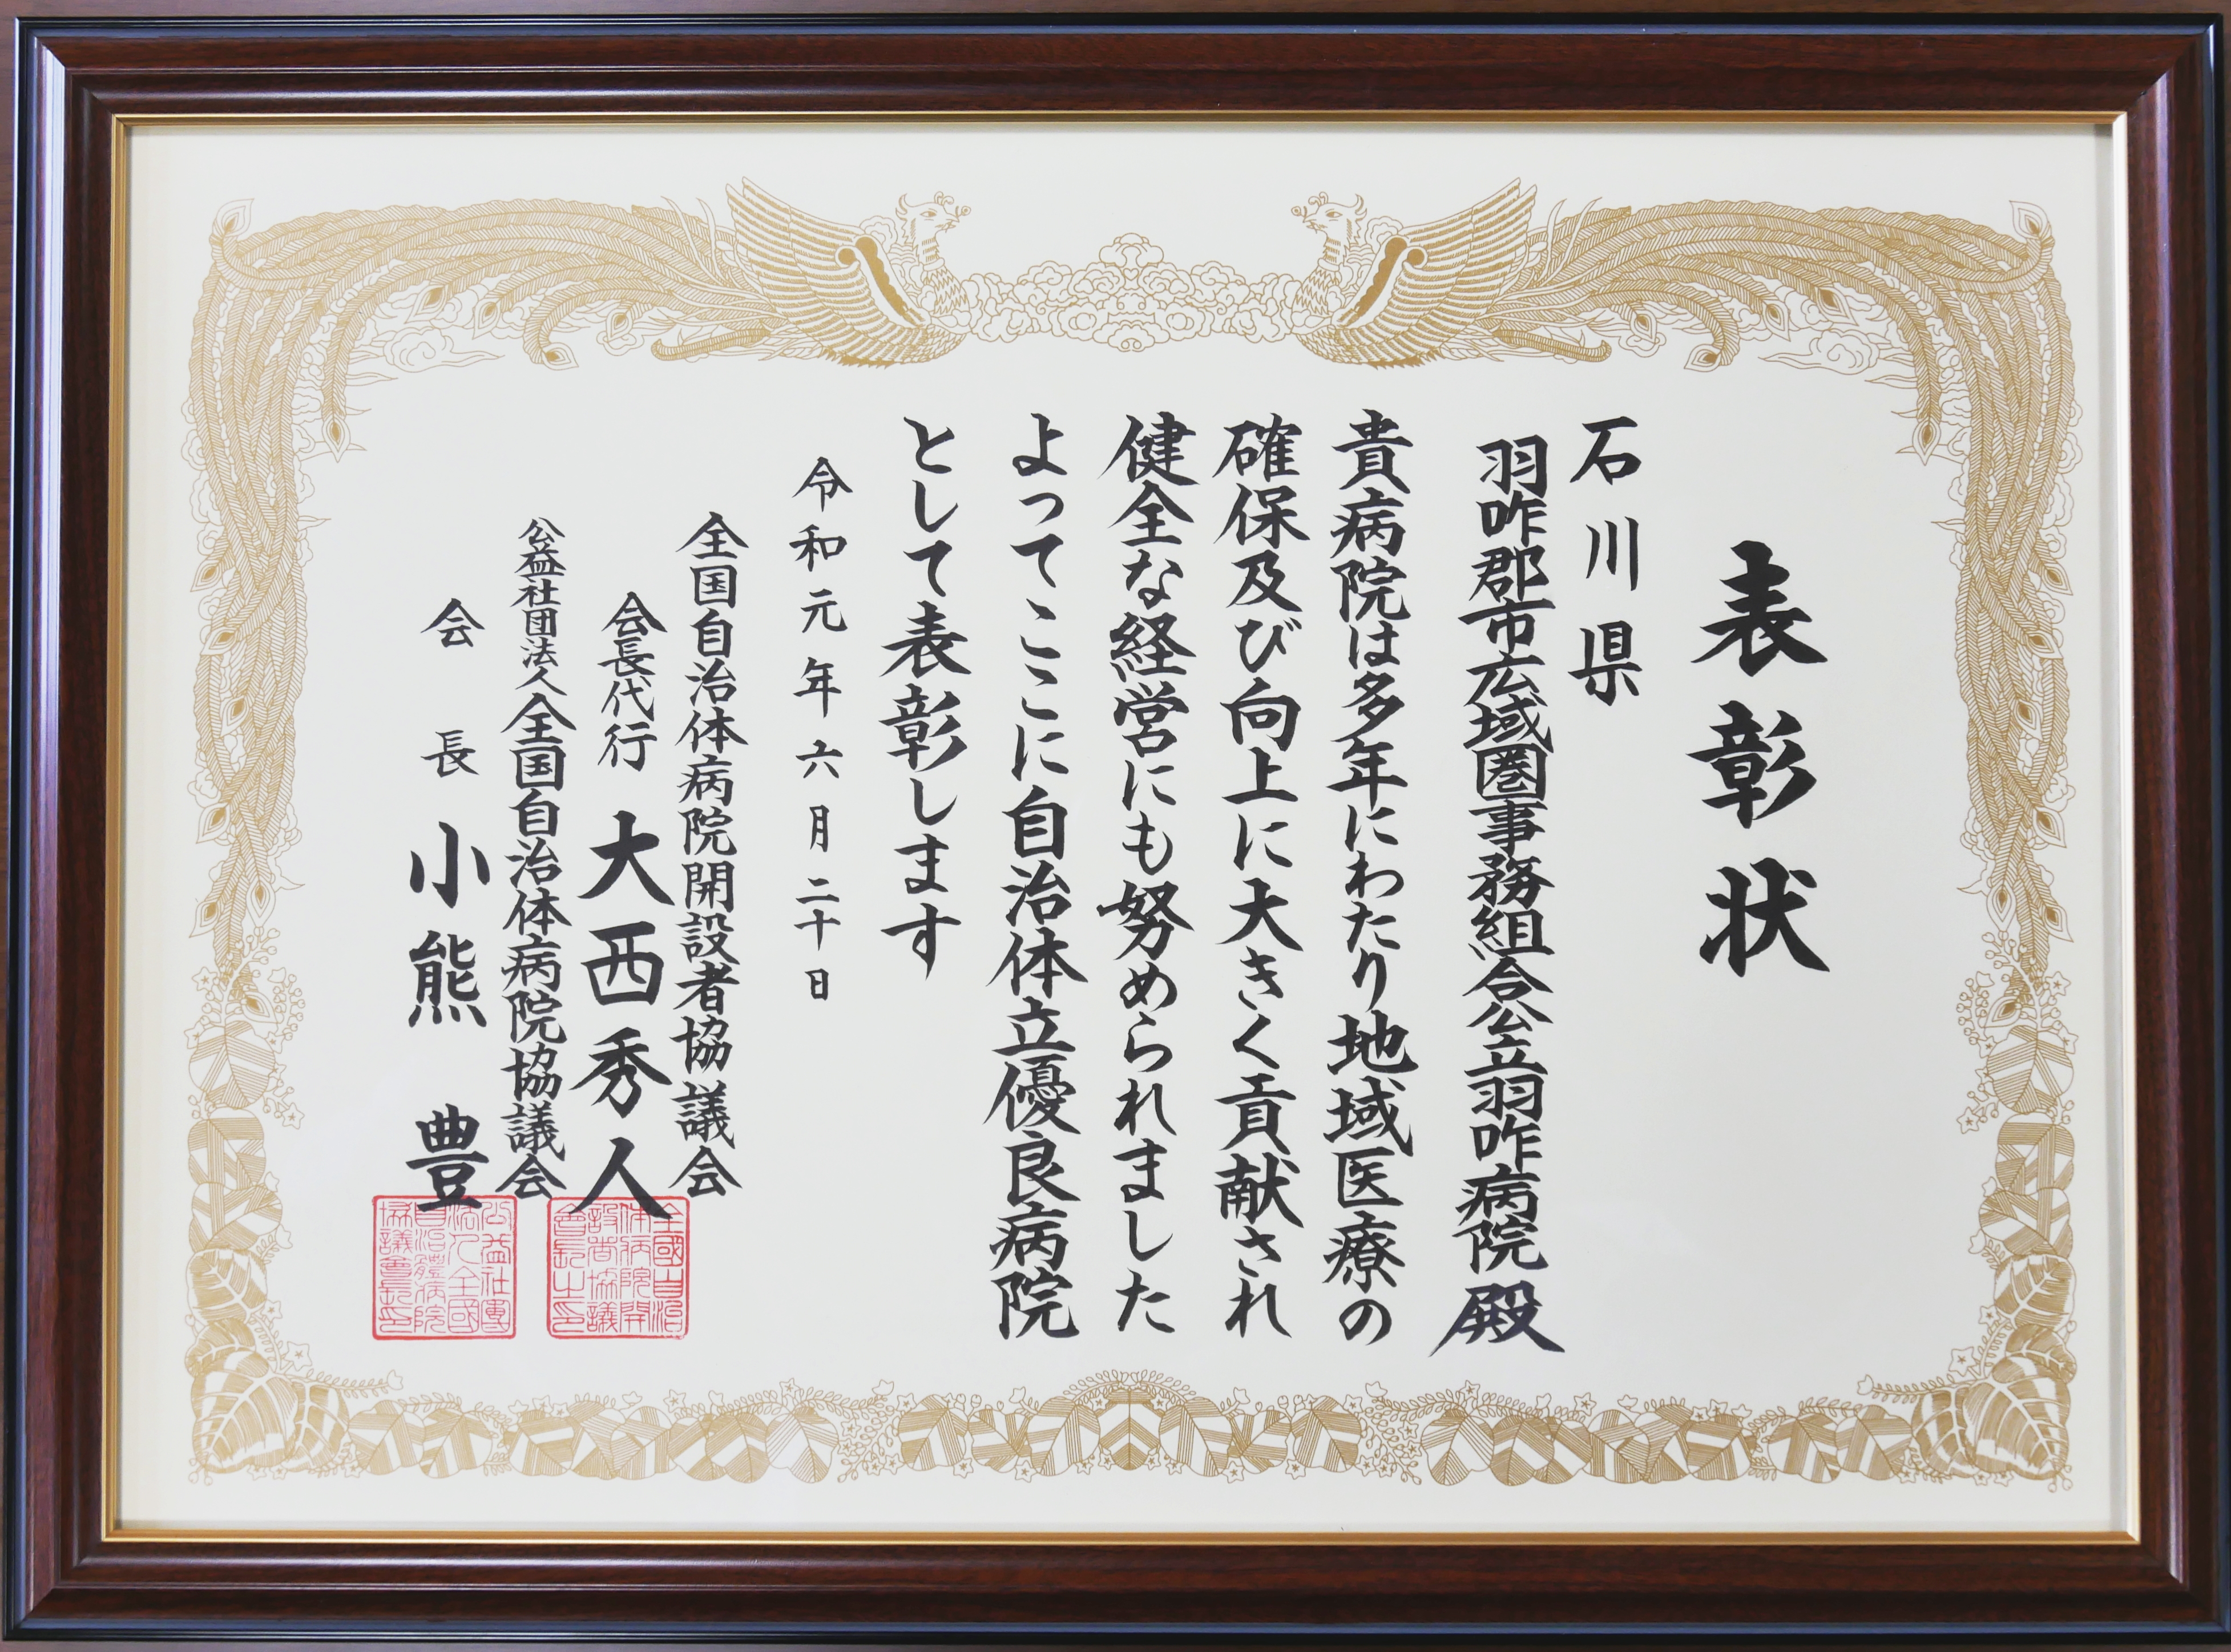 表彰状
石川県
羽咋郡市広域圏事務組合公立羽咋病院殿
貴病院は多年にわたり地域医療の
確保及び向上に大きく貢献され
健全な経営にも努められました
よってここに自治体立優良病院
として表彰します
令和元年六月二十日
全国自治体病院開設者協議会
会長代行 大西秀人
公益社団法人全国自治体病院協議会
会長 小熊 豊